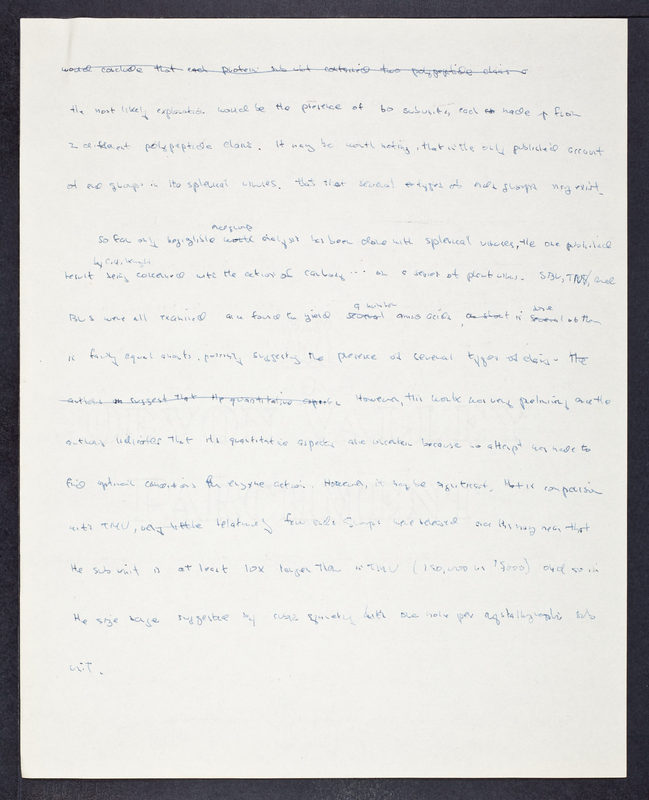 would conclude that each protein sub unit contained two polypeptide chains
the most likely explanation would be the presence of 60 subunits, each made up from
2 different polypeptide chains. It may be worth noting, that in the only published account
of end groups in its spherical viruses, that several types of end groups may exist.
So far only negligible endgroup analysis has been done with spherical viruses, the one published
by C.A. Knight
result being concerned with the action of carboxy ... on a series of plant viruses. SBV, TNV, and
BUS were all examined and found to yield several a number amino acids, in several of them
in fairly equal amounts, possibly suggesting the presence of several types of chains. The
authors suggest that the quantitative aspects However, this work was very preliminary and the
authors indicates that its quantitative aspects are uncertain because no attempt was made to
find optimal conditions for enzyme action. However, it may be significant, that in comparison
with TMV, very little relatively few end groups were released and this may mean that
the sub unit is at least 10x larger than in TMV (150,000 vs 15000) and so in
the size range suggested by cubic symmetry with one more per crystallographic sub
unit.